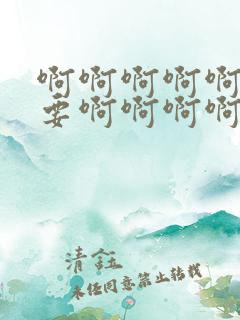 啊啊啊啊啊
要啊啊啊啊
清鈺
未经同意禁止转载